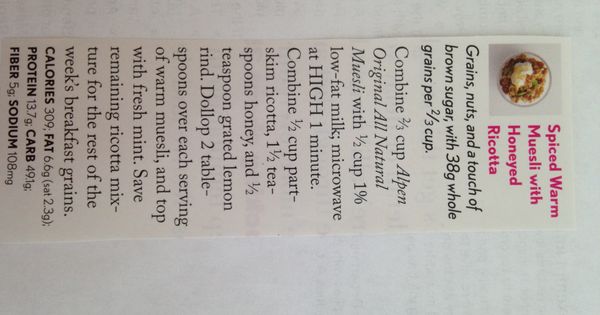 Spiced Warm
Muesli with
Honeyed
Ricotta
Grains, nuts, and a touch of
brown sugar, with 38g whole
grains per 2/3 cup.
Combine ⅔ cup Alpen
Original All Natural
Muesli with ½ cup 1%
low-fat milk; microwave
at HIGH 1 minute.
Combine ½ cup part-
skim ricotta, 1½ tea-
spoons honey, and ½
teaspoon grated lemon
rind. Dollop 2 table-
spoons over each serving
of warm muesli, and top
with fresh mint. Save
remaining ricotta mix-
ture for the rest of the
week's breakfast grains.
CALORIES 309; FAT 6.6g (sat 2.3g);
PROTEIN 13.7g; CARB 49g;
FIBER 5g; SODIUM 108mg